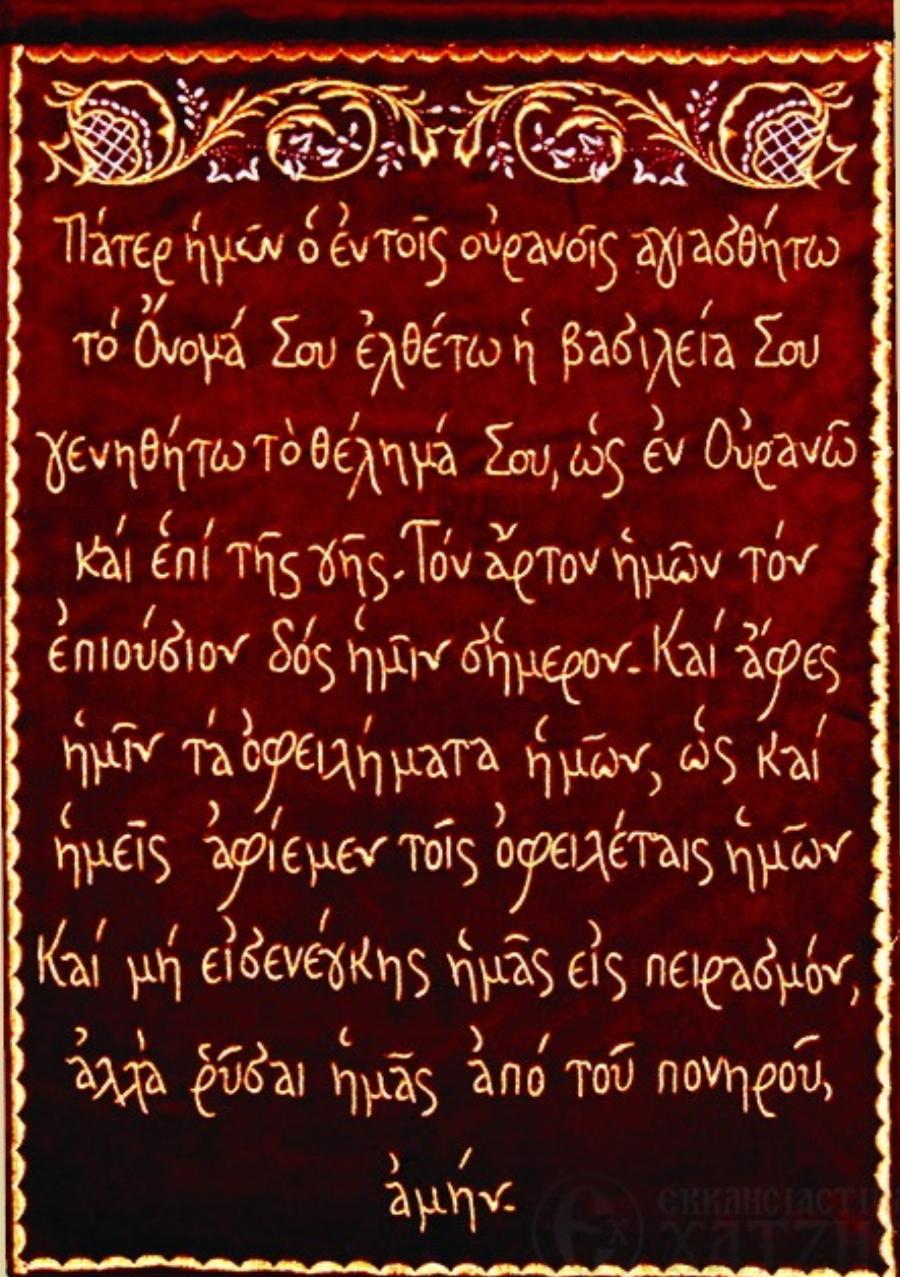 Πάτερ ἡμῶν ὁ ἐν τοῖς οὐρανοῖς αγιασθήτω
τό Ὄνομά Σου ἐλθέτω ἡ βασιλεία Σου
γενηθήτω τὸ θέλημά Σου, ὡς ἐν Οὐρανῶ
καί ἐπί τῆς γῆς. Τόν ἄρτον ἡμῶν τόν
ἐπιούσιον δός ἡμῖν σήμερον. Καί ἄφες
ἡμῖν τά ὀφειλήματα ἡμῶν, ὡς καί
ἡμεῖς ἀφίεμεν τοῖς ὀφειλέταις ἡμῶν
Καί μή εἰσενέγκης ἡμᾶς εἰς πειρασμόν,
ἀλλὰ ῥῦσαι ἡμᾶς ἀπό τοῦ πονηροῦ,
ἀμήν.
ΕΚΚΛΗΣΙΑΣΤΙ
ΧΑΤΖΗ